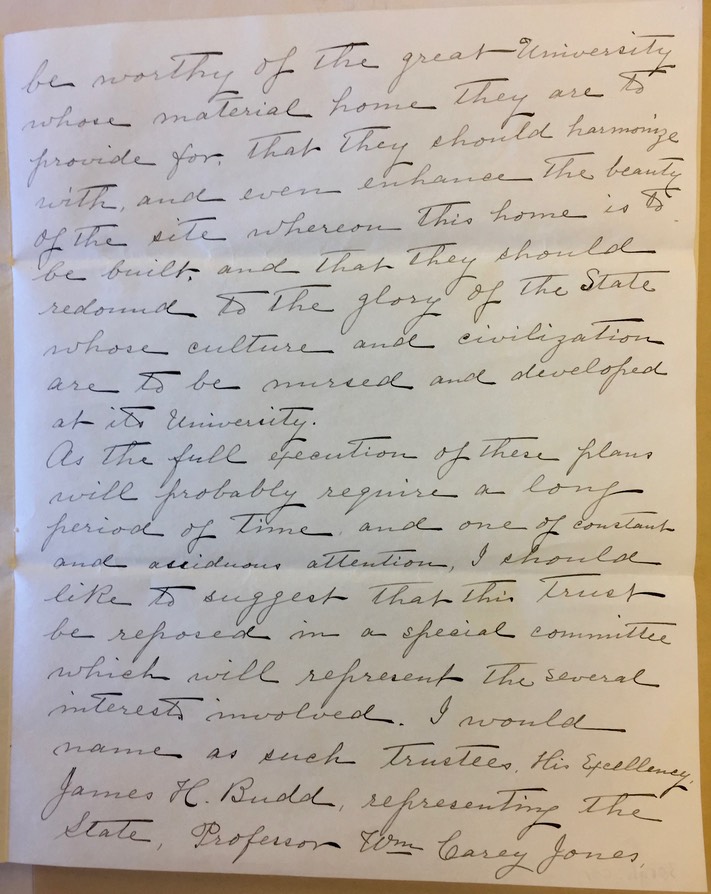 be worthy of the great University
whose material home they are to
provide for, that they should harmonize
with, and even enhance the beauty
of the site whereon this home is to
be built, and that they should
redound to the glory of the State
whose culture and civilization
are to be nursed and developed
at its University.
As the full execution of these plans
will probably require a long
period of time, and one of constant
and assiduous attention, I should
like to suggest that this trust
be reposed in a special committee
which will represent the several
interests involved. I would
name as such trustees, His Excellency,
James H. Budd, representing the
State, Professor Wm Carey Jones,